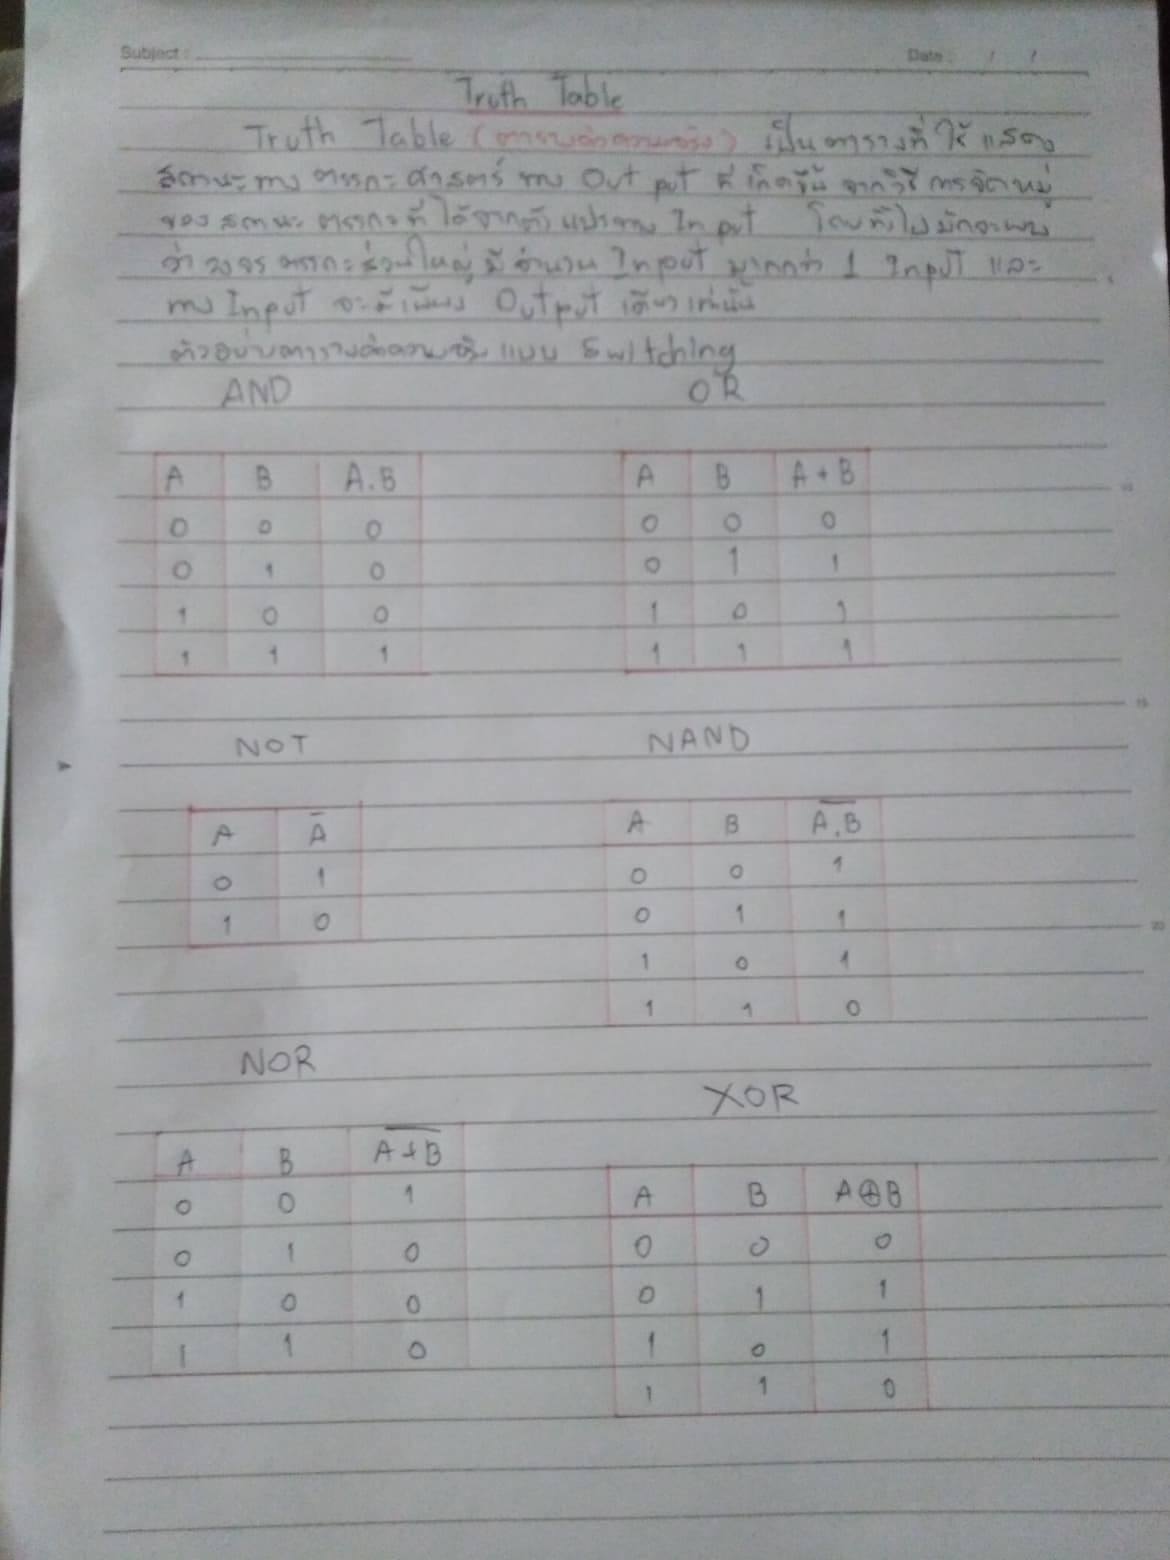 Subject : Date : / /
Truth Table
Truth Table (ตารางค่าความจริง) เป็นตารางที่ใช้แสดง
สถานะทาง ตรรกะศาสตร์ ทาง Out put ที่เกิดขึ้น จากวิธีการจัดหมู่
ของ สถานะ ตรรกะที่ได้จากตัวแปรทาง In put โดยทั่วไปมักจะพบ
ว่า วงจร ตรรกะส่วนใหญ่ มีจำนวน Input มากกว่า 1 Input และ
ทาง Input จะมีเพียง Output เดียวเท่านั้น
ตัวอย่างตารางค่าความจริงแบบ Switching
AND OR
A B A.B
0 0 0
0 1 0
1 0 0
1 1 1
A B A + B
0 0 0
0 1 1
1 0 1
1 1 1
NOT NAND
A Ā
0 1
1 0
A B A̅.̅B̅
0 0 1
0 1 1
1 0 1
1 1 0
NOR
A B A̅+̅B̅
0 0 1
0 1 0
1 0 0
1 1 0
XOR
A B A⊕B
0 0 0
0 1 1
1 0 1
1 1 0